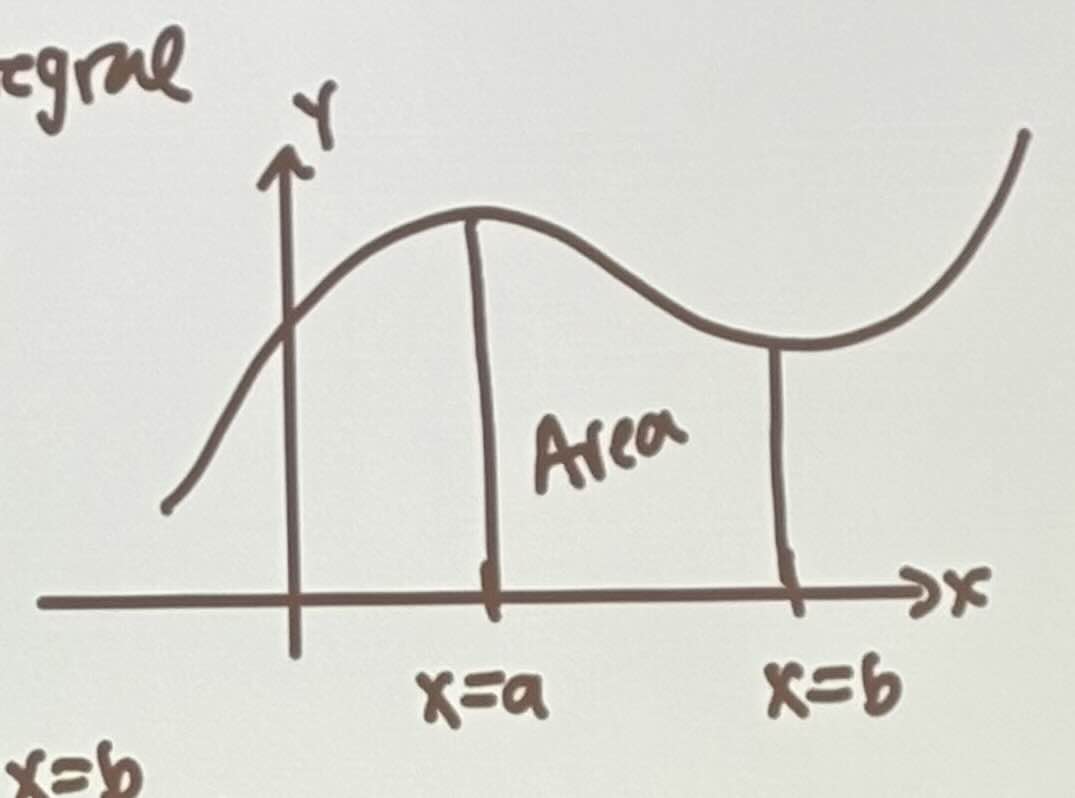 egral
Y
Area
x
x=a
x=b
x=b